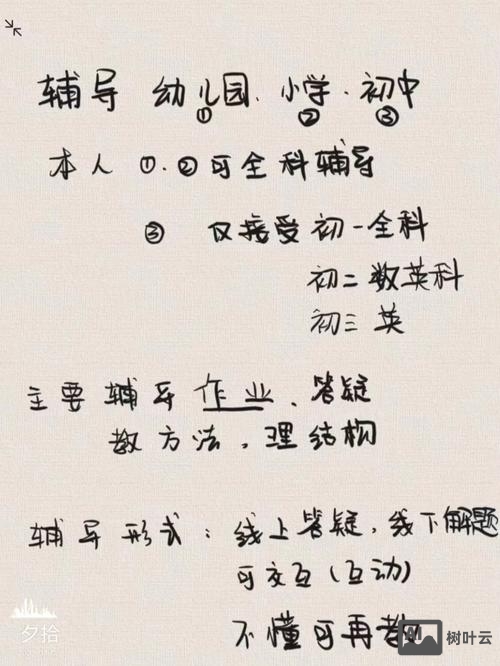 辅导 幼儿园. 小学. 初中
① ② ③
本人 ①.②可全科辅导
③ 仅接受初一全科
初二数英科
初三英
主要辅导作业、答疑
教方法，理结构
辅导形式：线上答疑，线下解题
可交互（互动）
不懂可再教
夕拾
树叶云